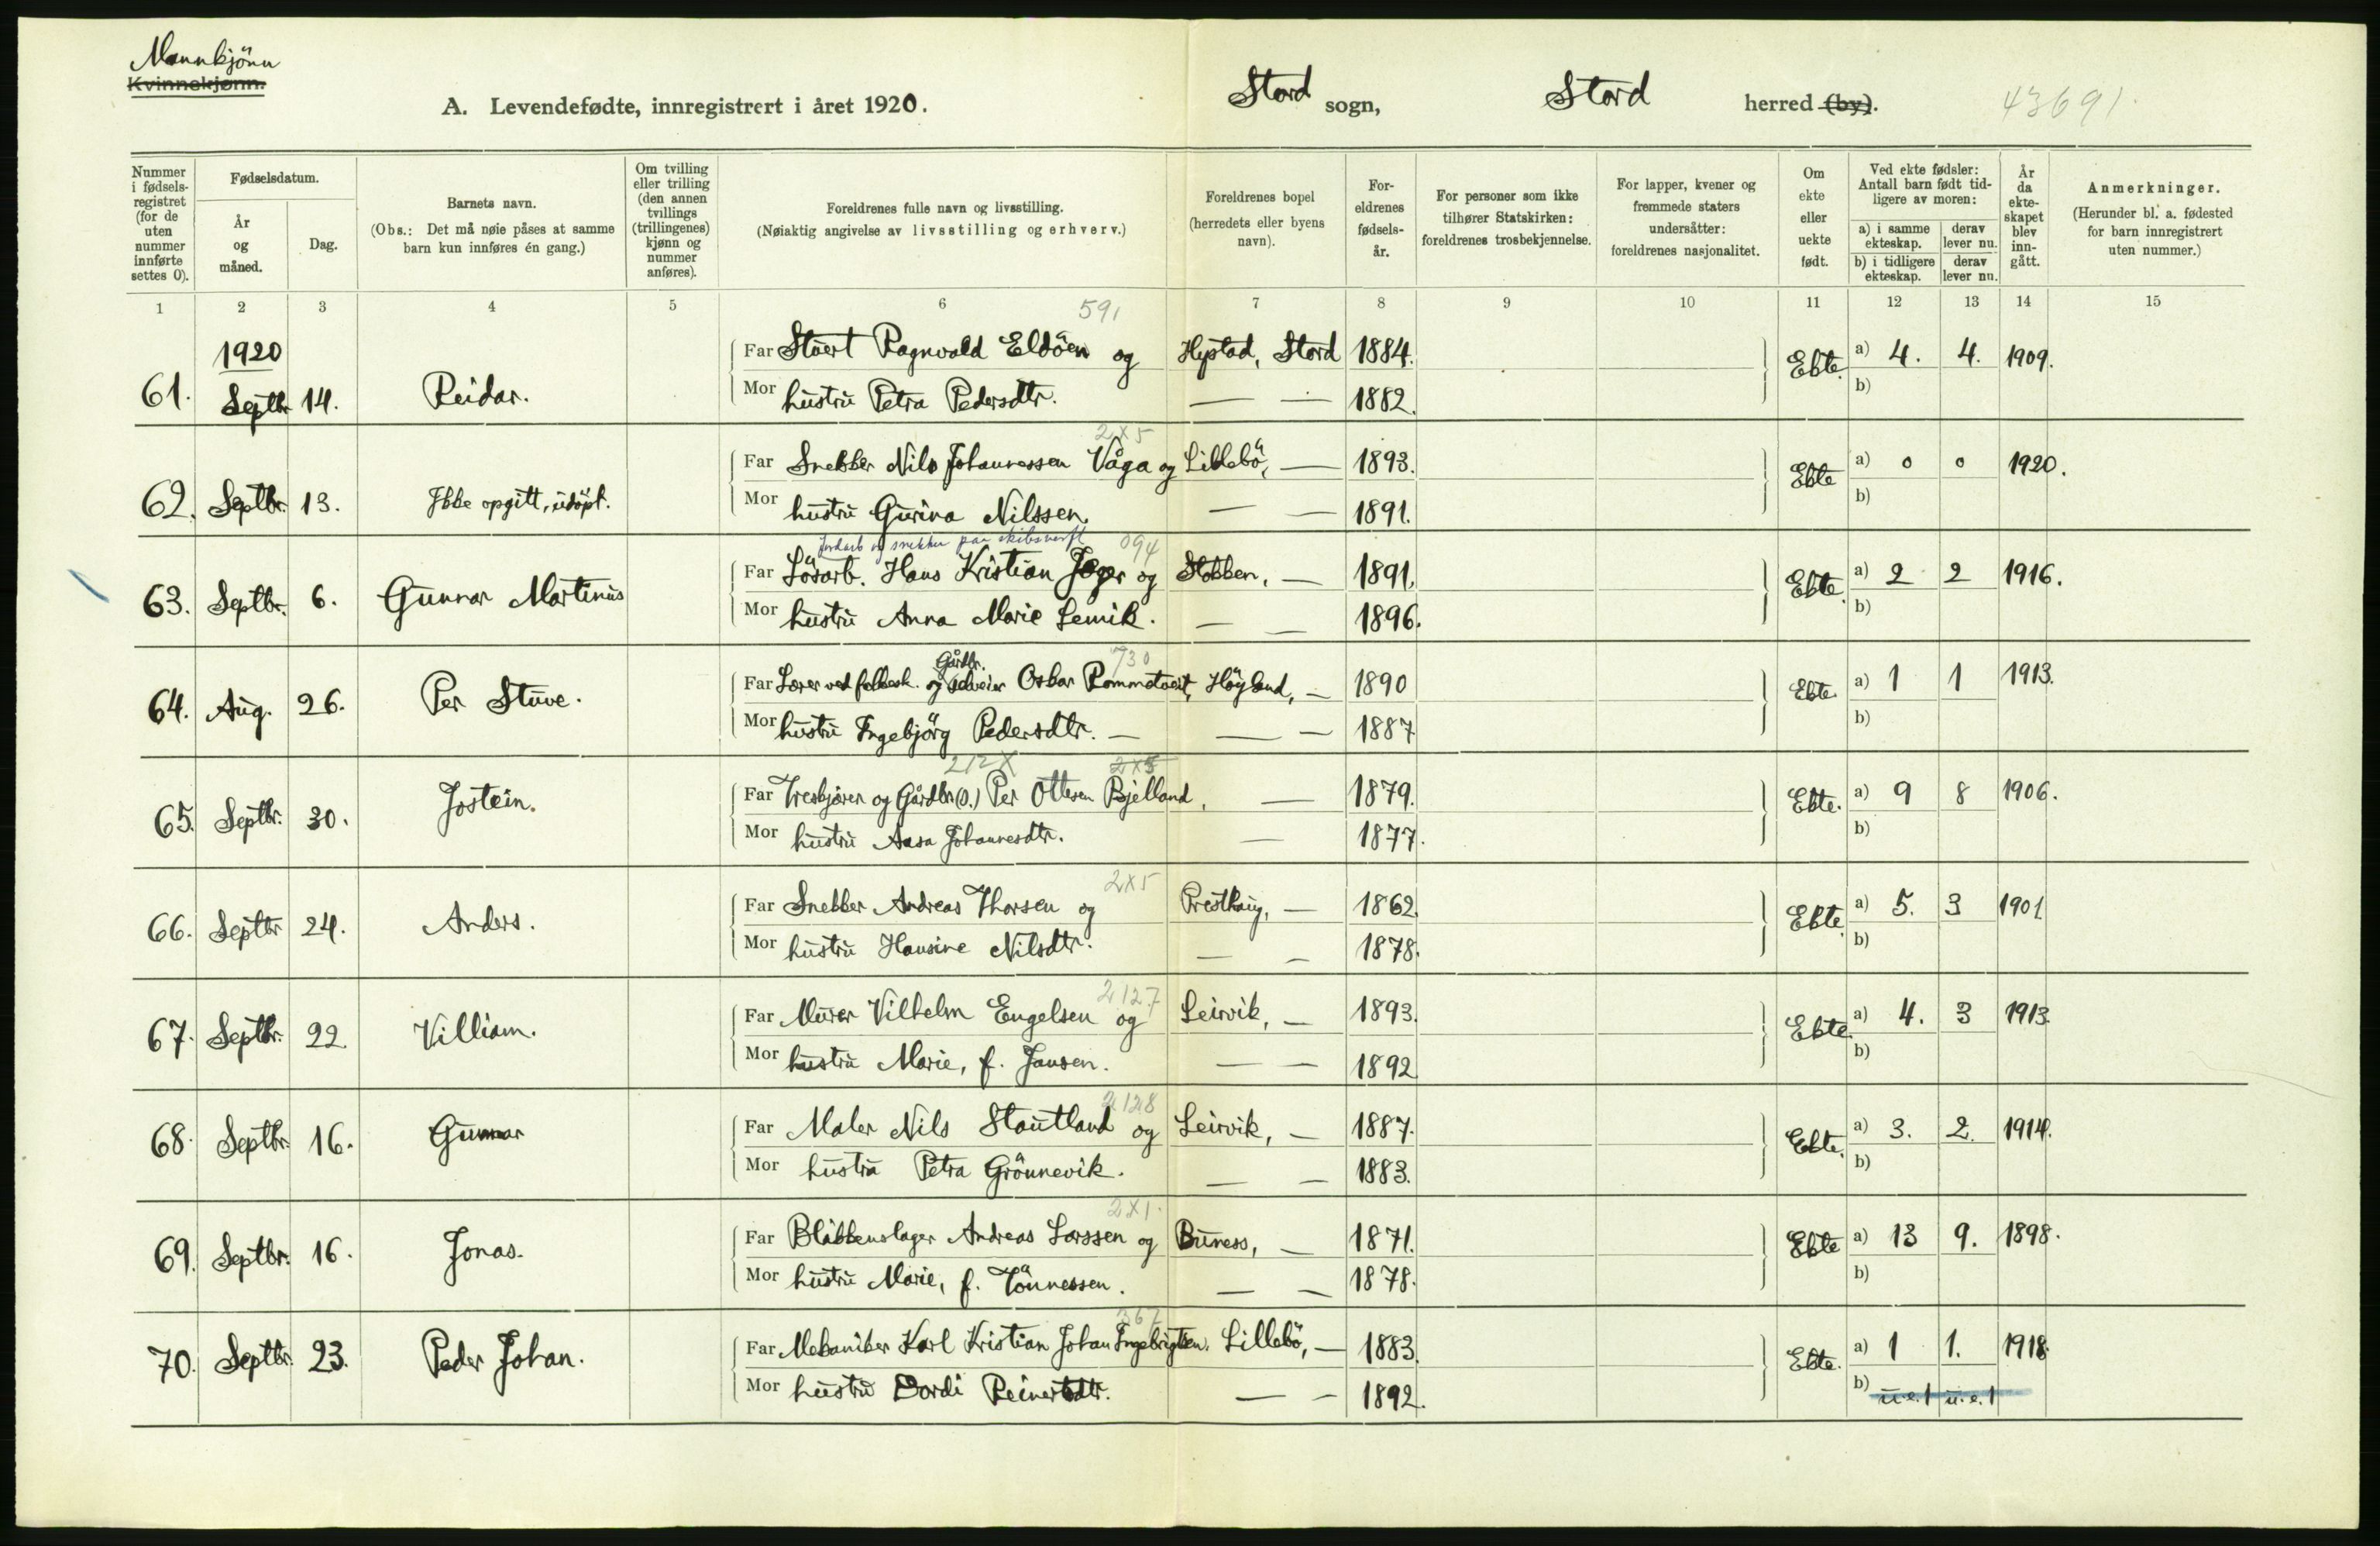 Mannkjönn
Kvinnekjønn.
A. Levendefødte, innregistrert i året 1920.
Stord sogn, Stord herred (by).
43691.
Nummer i fødsels-registret (for de uten nummer innførte settes 0).
Fødselsdatum.
År og måned.
Dag.
Barnets navn.
(Obs.: Det må nøie påses at samme barn kun innføres én gang.)
Om tvilling eller trilling (den annen tvillings (trillingenes) kjønn og nummer anføres).
Foreldrenes fulle navn og livsstilling.
(Nøiaktig angivelse av livsstilling og erhverv.)
Foreldrenes bopel (herredets eller byens navn).
For-eldrenes fødsels-år.
For personer som ikke tilhører Statskirken: foreldrenes trosbekjennelse.
For lapper, kvener og fremmede staters undersåtter: foreldrenes nasjonalitet.
Om ekte eller uekte født.
Ved ekte fødsler: Antall barn født tid-ligere av moren:
a) i samme ekteskap. derav lever nu.
b) i tidligere ekteskap. derav lever nu.
År da ekte-skapet blev inn-gått.
Anmerkninger.
(Herunder bl. a. fødested for barn innregistrert uten nummer.)
1 2 3 4 5 6 7 8 9 10 11 12 13 14 15
591
1920
Far Stuert Ragnvald Eldöen og Hystad, Stord 1884. a) 4. 4. 1909.
61. Septbr. 14. Reidar. Ekte. b)
Mor hustru Petra Pedersdtr. — — 1882.
2x5
Far Snekker Nils Johannessen Våga og Lillebö, — 1893. a) 0 0 1920.
62. Septbr. 13. Ikke opgitt, udöpt. Ekte b)
Mor hustru Gurina Nilssen. — — 1891.
Jordarb og snekker paa skibsverft 094
Far Lösarb. Hans Kristian Jæger og Stokken, — 1891. a) 2 2 1916.
63. Septbr. 6. Gunnar Martinus Ekte. b)
Mor hustru Anna Marie Lemik. — — 1896.
Gårdbr. 730
Far Lærer ved folkesk. og selveier Oskar Rommetveit, Höyland, — 1890 a) 1 1 1913.
64. Aug. 26. Per Stuve. Ekte. b)
Mor hustru Ingebjörg Pedersdtr. — — — 1887
212X 2x5
Far Treskjærer og Gårdbr.(s.) Per Ottesen Bjelland, — 1879. a) 9 8 1906.
65. Septbr. 30. Jostein. Ekte. b)
Mor hustru Aasa Johannesdtr. — 1877.
2x5
Far Snekker Andreas Thorsen og Presthaug, — 1862. a) 5. 3 1901
66. Septbr 24. Anders. Ekte. b)
Mor hustru Hansine Nilsdtr. — — 1878.
2127
Far Murer Vilhelm Engelsen og Leirvik, — 1893. a) 4. 3 1913.
67. Septbr. 22. Villiam. Ekte. b)
Mor hustru Marie, f. Jansen. — — 1892
2128
Far Maler Nils Stautland og Leirvik, — 1887. a) 3. 2. 1914.
68. Septbr. 16. Gunnar Ekte. b)
Mor hustru Petra Grönnevik. — — 1883.
2x1.
Far Blikkenslager Andreas Larssen og Buness, — 1871. a) 13 9. 1898.
69. Septbr. 16. Jonas. Ekte b)
Mor hustru Marie, f. Tönnessen. — — 1878.
367
Far Mekaniker Karl Kristian Johan Ingebrigtsen. Lillebö, — 1883. a) 1 1. 1918.
70. Septbr. 23. Peder Johan. Ekte. b) u.e.1 u.e.1
Mor hustru Dordi Reinertsdtr. — — 1892.